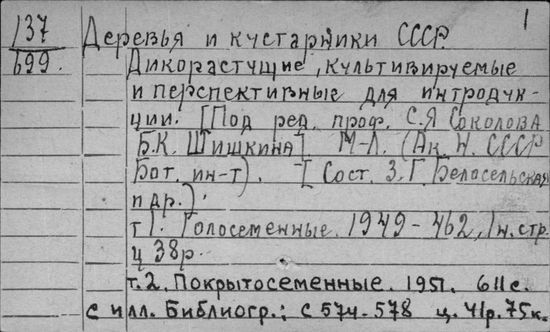 1
137
699.
Деревья и кустарники СССР.
Дикорастущие, культивируемые
и перспективные для интродук-
ции. [Под ред. проф. С.Я Соколова
Б.К. Шишкина]. М-Л. (Ак. Н. СССР
Бот. ин-т). [Сост. З.Г. Белосельская
и др.).
т 1. Голосеменные. 1949 - 462, 1 н. стр.
ц 38р.
т.2. Покрытосеменные. 1951. 611с.
с илл. Библиогр.: с 574-578 ц. 41р. 75к.